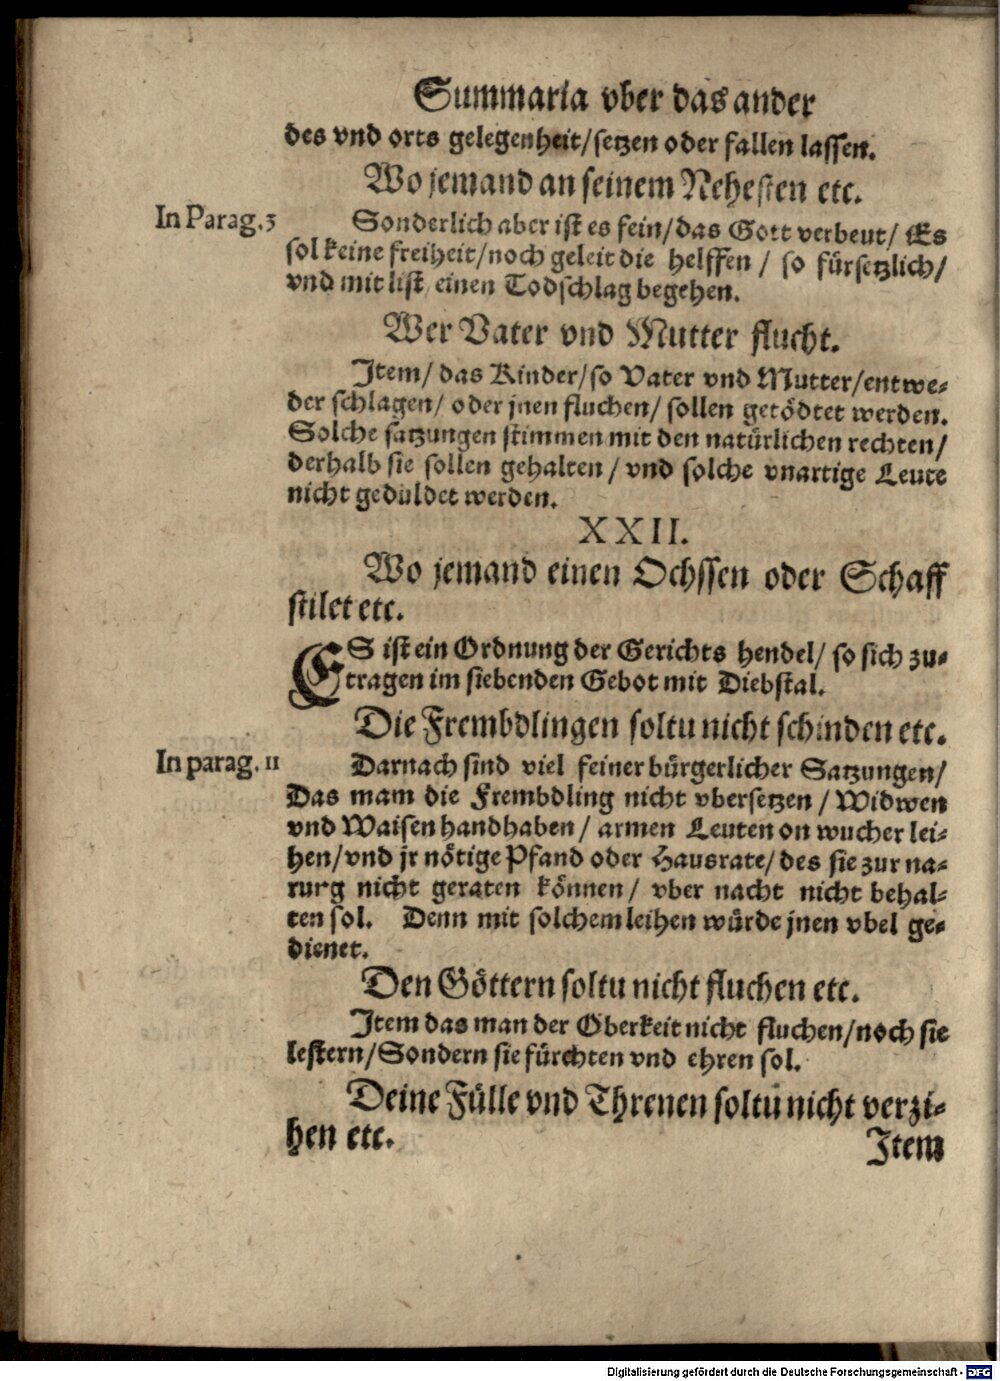 Summaria vber das ander
des vnd orts gelegenheit/setzen oder fallen lassen.
Wo jemand an seinem Nehesten etc.
In Parag.3
Sonderlich aber ist es fein/das Gott verbeut/ Es
sol keine freiheit/noch geleit die helffen / so fürsetzlich/
vnd mit list einen Todschlag begehen.
Wer Vater vnd Mutter flucht.
Item/ das Kinder/so Vater vnd Mutter/entwe-
der schlagen/ oder jnen fluchen/ sollen getödtet werden.
Solche satzungen stimmen mit den natürlichen rechten/
derhalb sie sollen gehalten / vnd solche vnartige Leute
nicht geduldet werden.
XXII.
Wo jemand einen Ochssen oder Schaff
stilet etc.
ES ist ein Ordnung der Gerichts hendel/ so sich zu-
tragen im siebenden Gebot mit Diebstal.
Die Frembdlingen soltu nicht schinden etc.
In parag. 11
Darnach sind viel feiner bürgerlicher Satzungen/
Das mam die Frembdling nicht vbersetzen / Widwen
vnd Waisen handhaben / armen Leuten on wucher lei-
hen/vnd jr nötige Pfand oder Hausrate/ des sie zur na-
rurg nicht geraten können/ vber nacht nicht behal-
ten sol. Denn mit solchem leihen würde jnen vbel ge-
dienet.
Den Göttern soltu nicht fluchen etc.
Item das man der Oberkeit nicht fluchen/noch sie
lestern/Sondern sie fürchten vnd ehren sol.
Deine Fülle vnd Threnen soltu nicht verzi-
hen etc.
Item
Digitalisierung gefördert durch die Deutsche Forschungsgemeinschaft - DFG